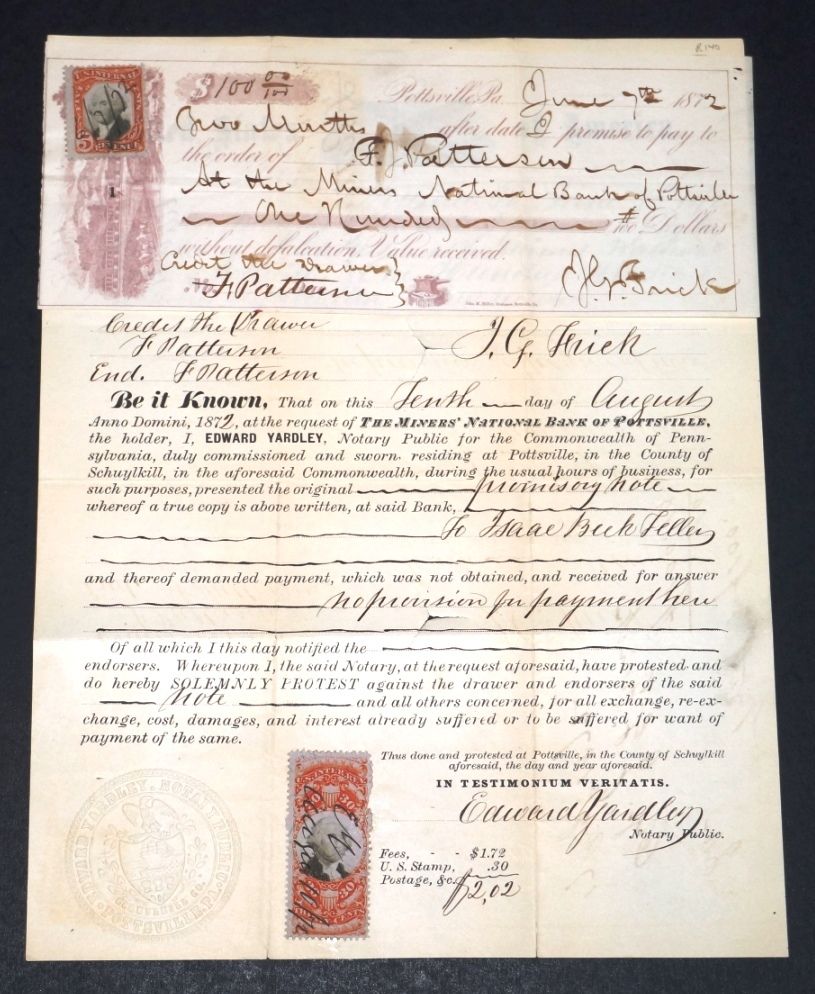 R140
U.S. INTERNAL
REVENUE
5
$100 00/100 Pottsville, Pa. June 7th 1872
Two Months after date I promise to pay to
the order of F. J. Patterson
At the Miners National Bank of Pottsville
One Hundred 00/100 Dollars
without defalcation, Value received.
Credit the Drawer
F Patterson
J. G. Frick
1
No.
Credit the Drawer
F Patterson J. G. Frick
End. F Patterson
Be it Known, That on this Tenth day of August
Anno Domini, 1872, at the request of THE MINERS' NATIONAL BANK OF POTTSVILLE,
the holder, I, EDWARD YARDLEY, Notary Public for the Commonwealth of Penn-
sylvania, duly commissioned and sworn, residing at Pottsville, in the County of
Schuylkill, in the aforesaid Commonwealth, during the usual hours of business, for
such purposes, presented the original promisory note
whereof a true copy is above written, at said Bank,
To Isaac Beck Teller
and thereof demanded payment, which was not obtained, and received for answer
no provision for payment here
Of all which I this day notified the
endorsers. Whereupon I, the said Notary, at the request aforesaid, have protested and
do hereby SOLEMNLY PROTEST against the drawer and endorsers of the said
note and all others concerned, for all exchange, re-ex-
change, cost, damages, and interest already suffered or to be suffered for want of
payment of the same.
Thus done and protested at Pottsville, in the County of Schuylkill
aforesaid, the day and year aforesaid.
IN TESTIMONIUM VERITATIS.
Edward Yardley
Notary Public.
Fees, - - $1.72
U. S. Stamp, .30
Postage, &c.
$2,02
U.S. INTER.
30 30
30 30
CENTS
EDWARD YARDLEY, NOTARY PUBLIC.
POTTSVILLE, PA.